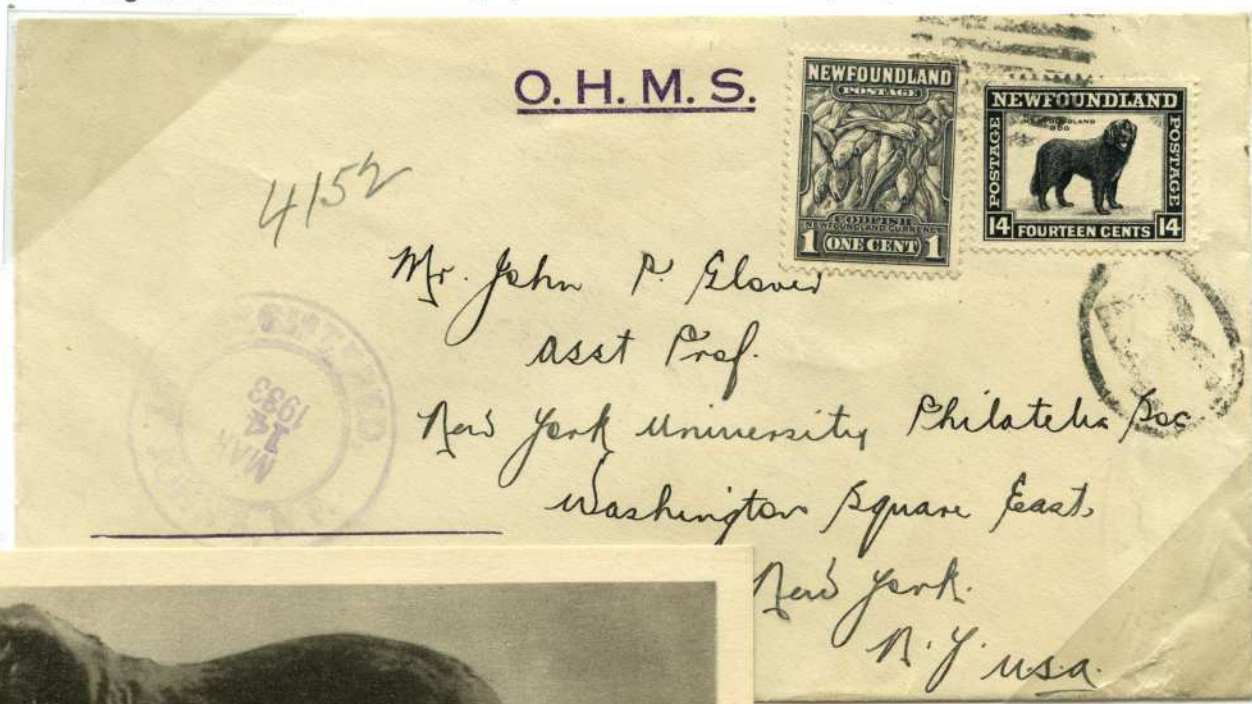 O. H. M. S.
NEWFOUNDLAND
POSTAGE
CODFISH
NEWFOUNDLAND CURRENCY
1 ONE CENT 1
NEWFOUNDLAND
POSTAGE
NEWFOUNDLAND
DOG
POSTAGE
14 FOURTEEN CENTS 14
4152
Mr. John P. Glover
Asst Prof.
New York University Philatelic Soc
Washington Square East.
New York.
N.Y. U.S.A.
MAR
14
1933
R